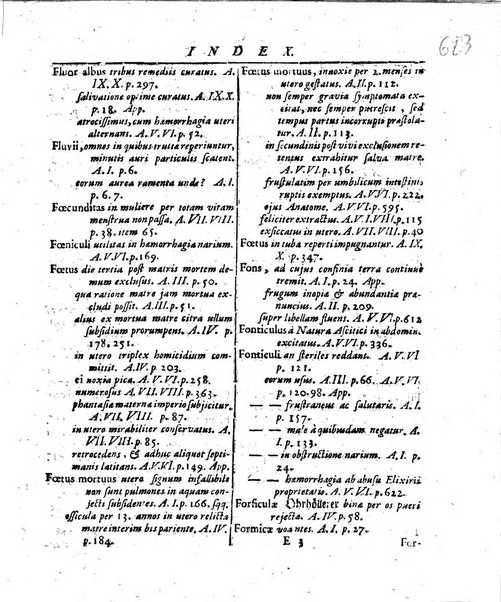 623
INDEX.
Fluor albus tribus remediis curatus. A.
IX. X. p. 297.
salivatione optime curatus. A. IX. X.
p. 18. App.
atrocissimus, cum hæmorrhagia uteri
alternans. A. V. VI. p. 52.
Fluvii, omnes in quibus trutta reperiuntur,
minutis auri particulis scatent.
A. I. p. 6.
eorum aurea ramenta unde? A. I.
p. 6. 7.
Fœcunditas in muliere per totam vitam
menstrua non passa. A. VII. VIII.
p. 38. item 65.
Fœniculi utilitas in hæmorrhagia narium.
A. V. VI. p. 169.
Fœtus die tertia post matris mortem de-
mum exclusus. A. III. p. 50.
qua ratione matre jam mortua ex-
cludi possit. A. III. p. 51.
alius ex mortua matre citra ullum
subsidium prorumpens. A. IV. p.
178. 251.
in utero triplex homicidium com-
mittit. A. IV. p. 203.
ei noxia pica. A. V. VI. p. 258.
numerosus A. VII. VIII. p. 363.
phantasia materna imperio subjicitur.
A. VII. VIII. p. 87.
in utero mirabiliter conservatus. A.
VII. VIII. p. 85.
retrocedens, & adhuc aliquot septi-
manis latitans. A. V. VI. p. 149. App.
Fœtus mortuus utero signum infallibile
non sunt pulmones in aquam con-
jecti subsidentes. A. I. p. 166. sqq.
ossicula per 13. annos in utero relicta
matre interim bis pariente. A. IV.
p. 184.
Fœtus mortuus, innoxie per 2. menses in
utero gestatus. A. II. p. 112.
non semper gravia symptomata ex-
citat, nec semper putrescit, sed
tempus partus incorrupto præstola-
tur. A. II. p. 113.
in secundinis post vivi exclusionem re-
tentus extrahitur salva matre.
A. V. VI. p. 156.
frustulatim per umbilicum intestinis
ruptis exemptus. A. V. VI. p. 222.
ejus Anatome. A. V. VI. p. 595.
feliciter extractus. A. V. I. VIII. p. 115
exsiccatus in utero. A. VII. VIII. p. 40
Fœtus in tuba reperti impugnantur. A. IX.
X. p. 347.
Fons, ad cujus confinia terra continuo
tremit. A. I. p. 24. App.
frugum inopia & abundantia præ-
nuncius. A. II. p. 118.
super libellam fluens. A. V. VI. p. 612
Fonticulus à Natura Ascitici in abdomine
excitatus. A. V. VI. p. 336.
Fonticuli an steriles reddant. A. V. VI
p. 121.
eorum usus. A. III. p. 66. A. V. VI.
p. 120. 98. App.
— — frustraneus ac salutaris. A. I.
p. 157.
— — male à quibusdam negatur. A.
I. p. 133.
— — in obstructione narium. A. I. p.
24.
— — hæmorrhagia ab abusu Elixirii
proprietatis. A. V. VI. p. 622.
Forficulæ Ohrhölterer binæ per os pueri
rejecta. A. IV. p. 58.
Formicæ volantes. A. I. p. 27.
E 3 For-